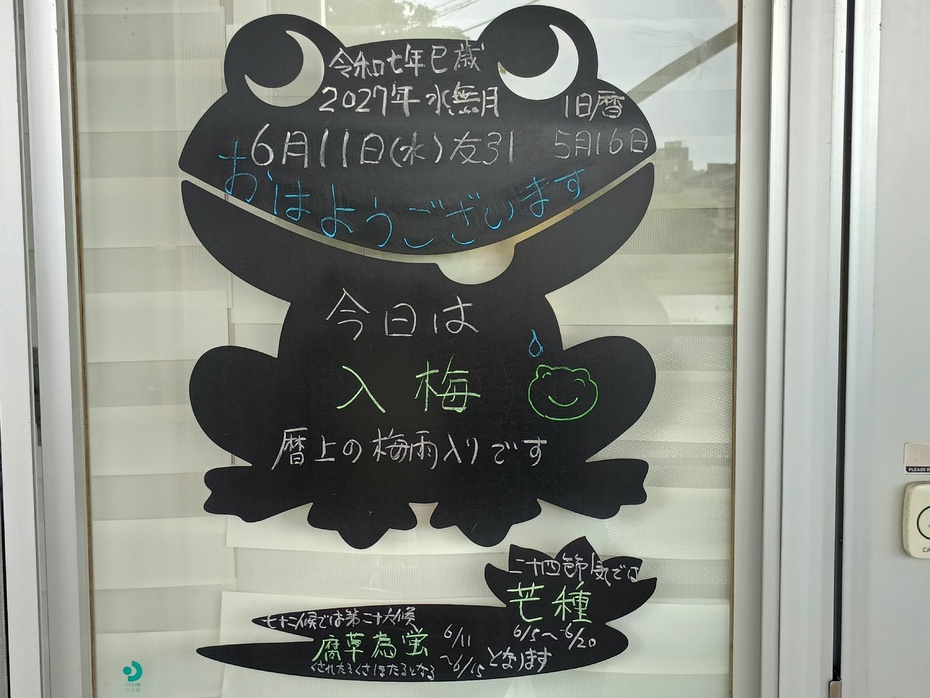 令和七年巳歳
2027年 水無月 旧暦
6月11日(水)友31 5月16日
おはようございます
今日は
入梅
暦上の梅雨入りです
二十四節気では
芒種
6/5〜6/20
となります
七十二候では第二十六候
腐草為螢
くされたるくさほたるとなる
6/11
〜6/15